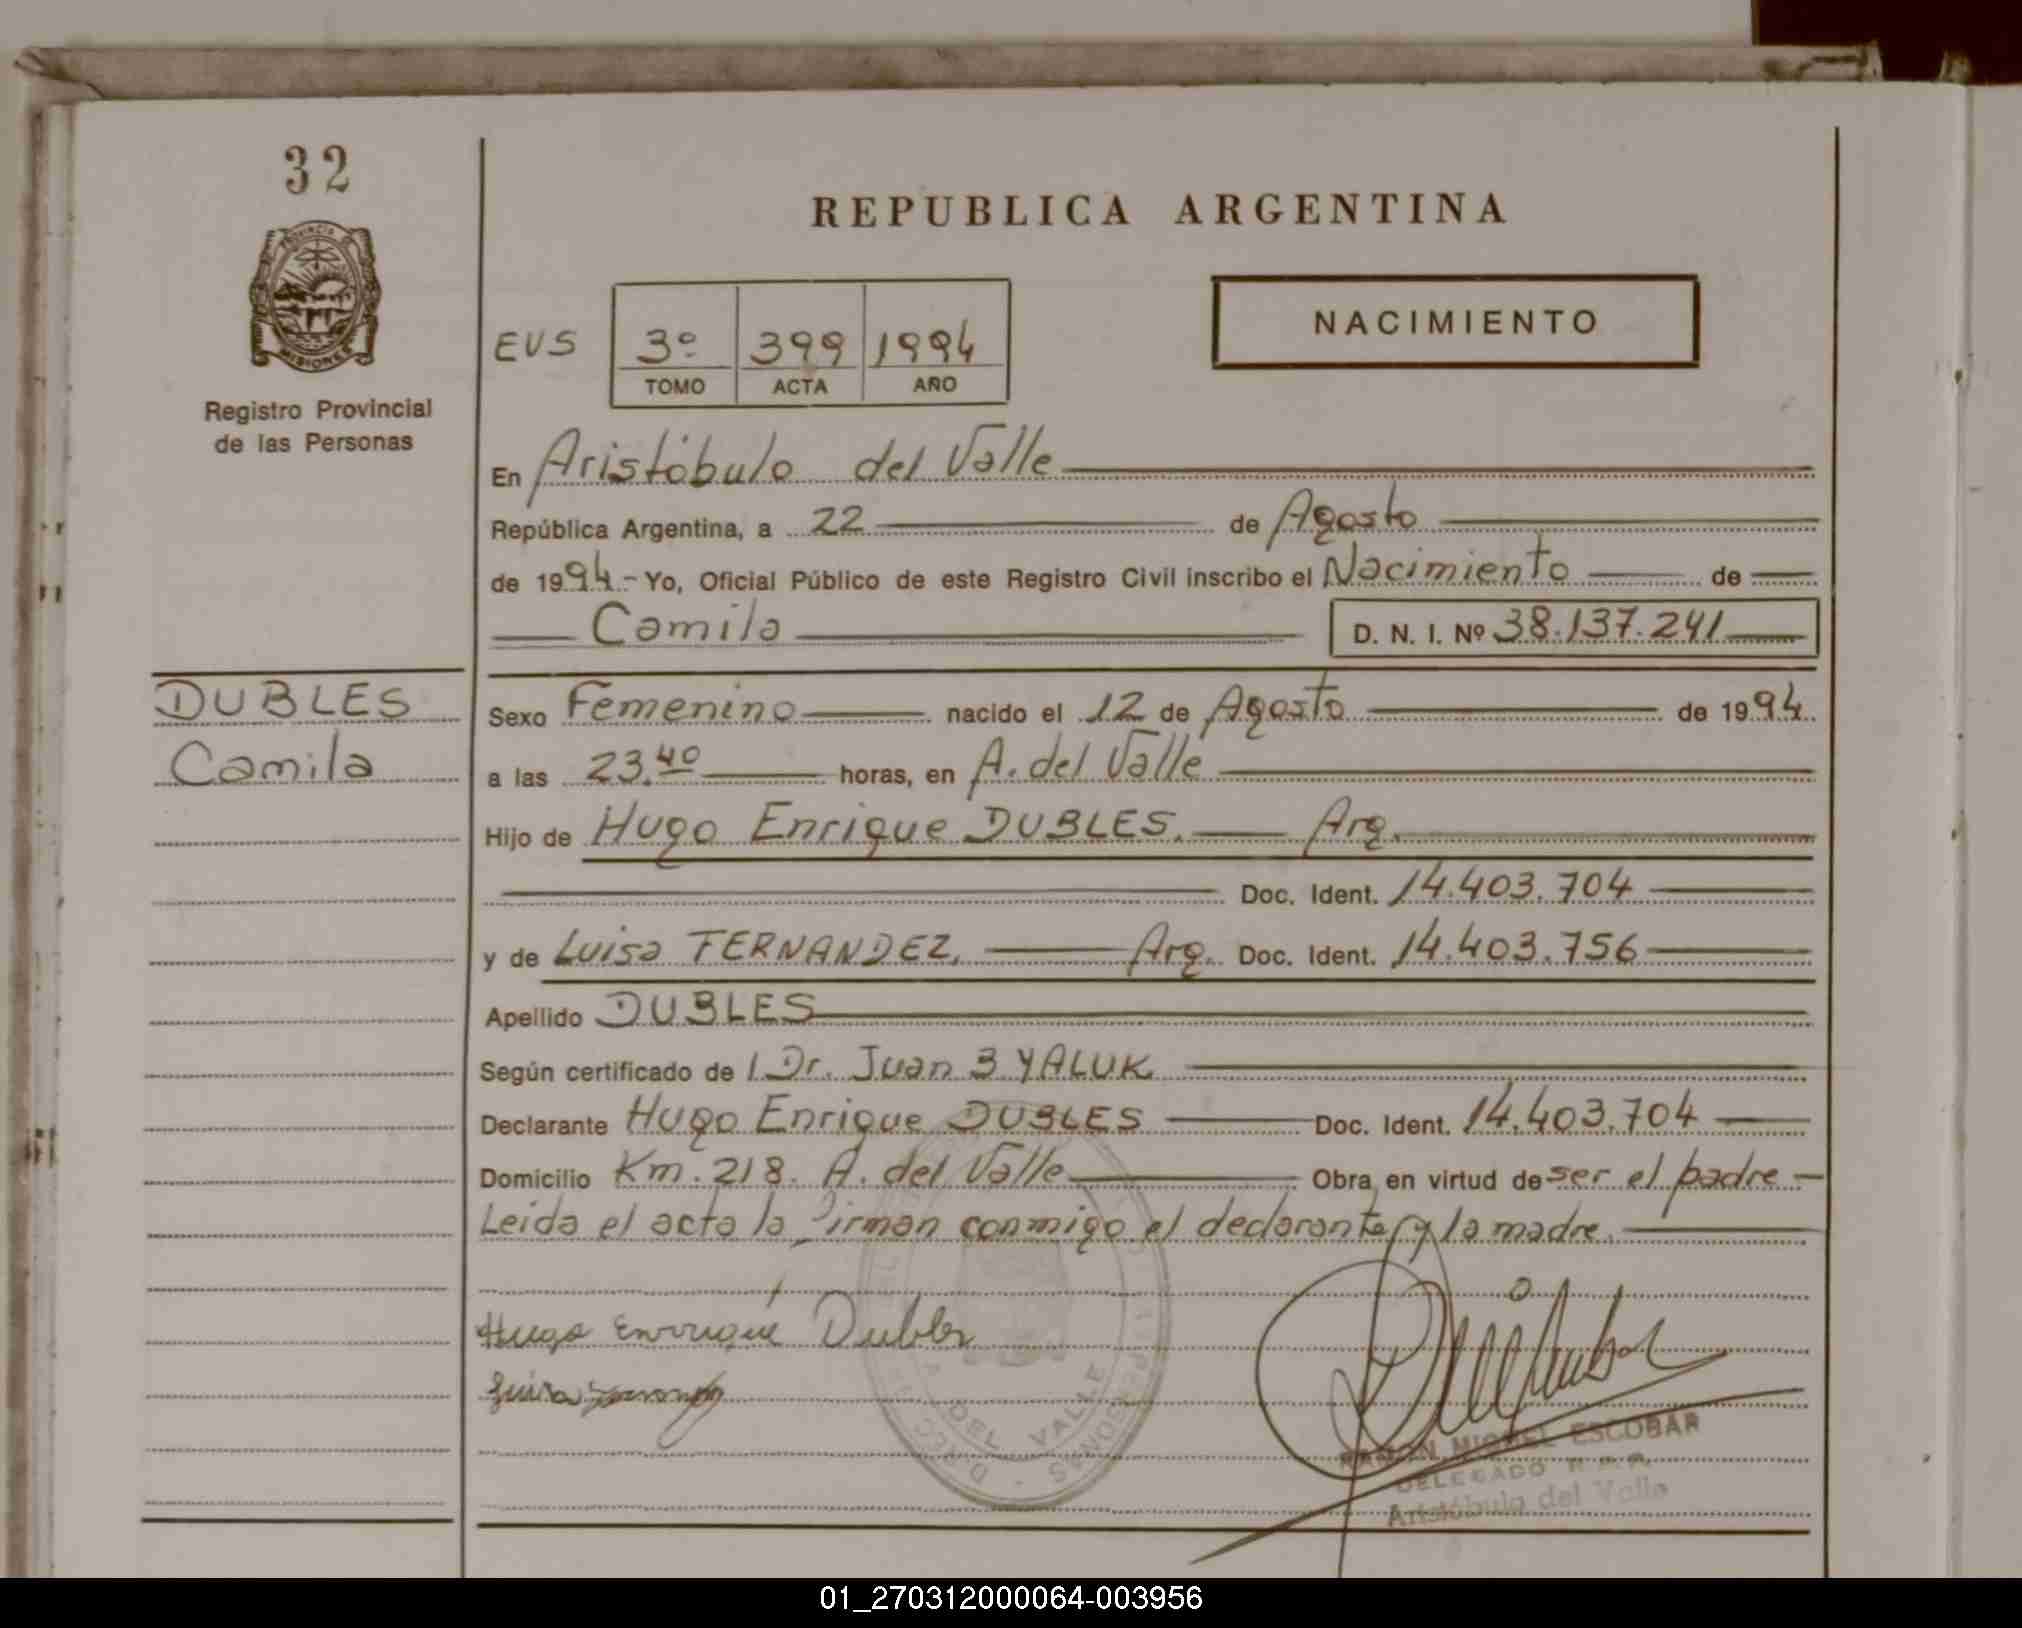 32
REPUBLICA ARGENTINA
PROVINCIA DE
MISIONES
Registro Provincial
de las Personas
NACIMIENTO
EVS 3º 399 1994
TOMO ACTA AÑO
En Aristóbulo del Valle
República Argentina, a 22 de Agosto
de 1994.- Yo, Oficial Público de este Registro Civil inscribo el Nacimiento de
Camila D. N. I. Nº 38.137.241
DUBLES
Camila
Sexo Femenino nacido el 12 de Agosto de 1994.
a las 23.40 horas, en A. del Valle
Hijo de Hugo Enrique DUBLES. Arg.
Doc. Ident. 14.403.704
y de Luisa FERNANDEZ. Arg. Doc. Ident. 14.403.756
Apellido DUBLES
Según certificado de l Dr. Juan BYALUK
Declarante Hugo Enrique DUBLES Doc. Ident. 14.403.704
Domicilio Km. 218. A. del Valle Obra en virtud de ser el padre
Leida el acta la firman conmigo el declarante y la madre.
Hugo Enrrique Dubles
Luisa
DEL VALLE
RAMON MIGUEL ESCOBAR
DELEGADO R.P.P.
Aristóbulo del Valle
01_270312000064-003956